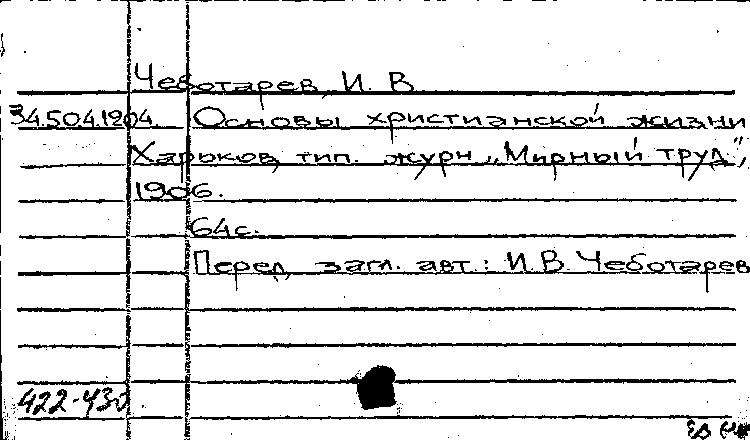 Чеботарев, И. В.
34.504.1904. Основы христианской жизни
Харьков, тип. журн. „Мирный труд",
1906.
64с.
Перед загл. авт.: И.В. Чеботарев
422-430